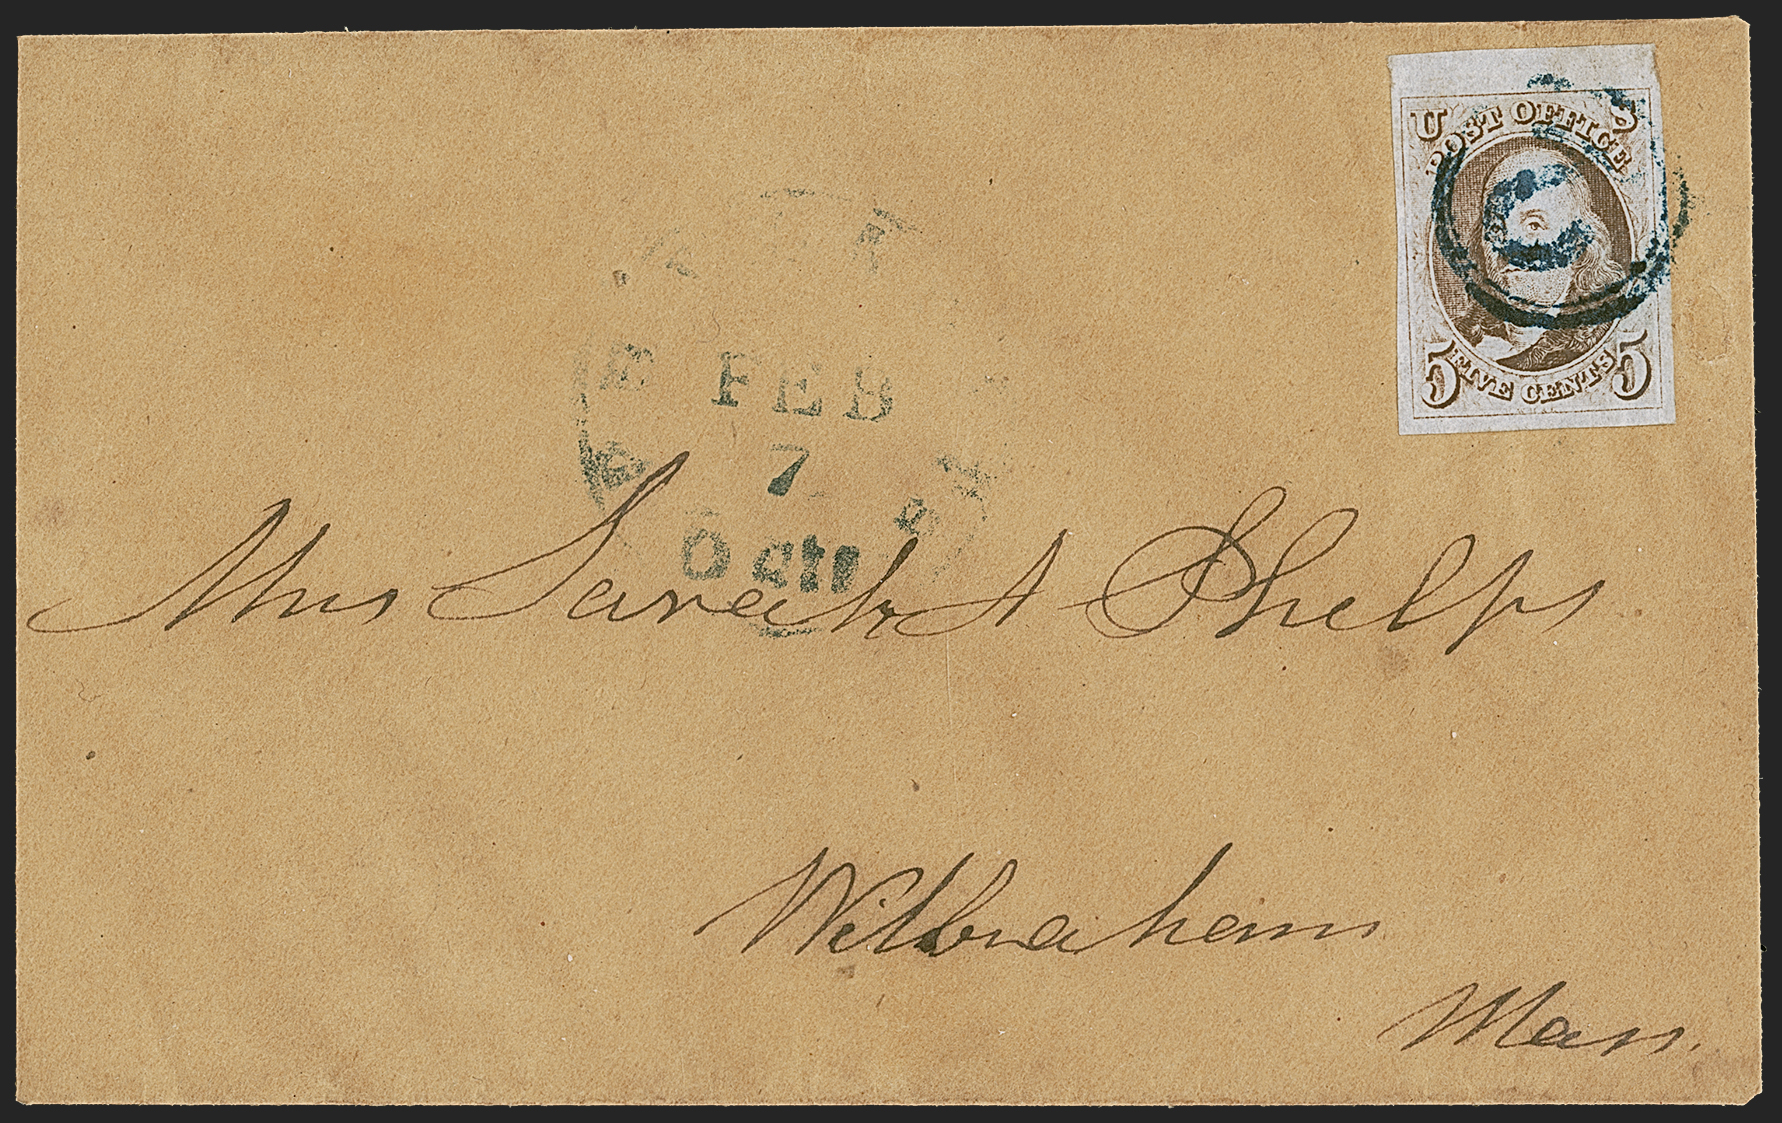 U S
POST OFFICE
5 FIVE CENTS 5
FEB
7
Mrs Sarah A Phelps
Wilbraham
Mass.